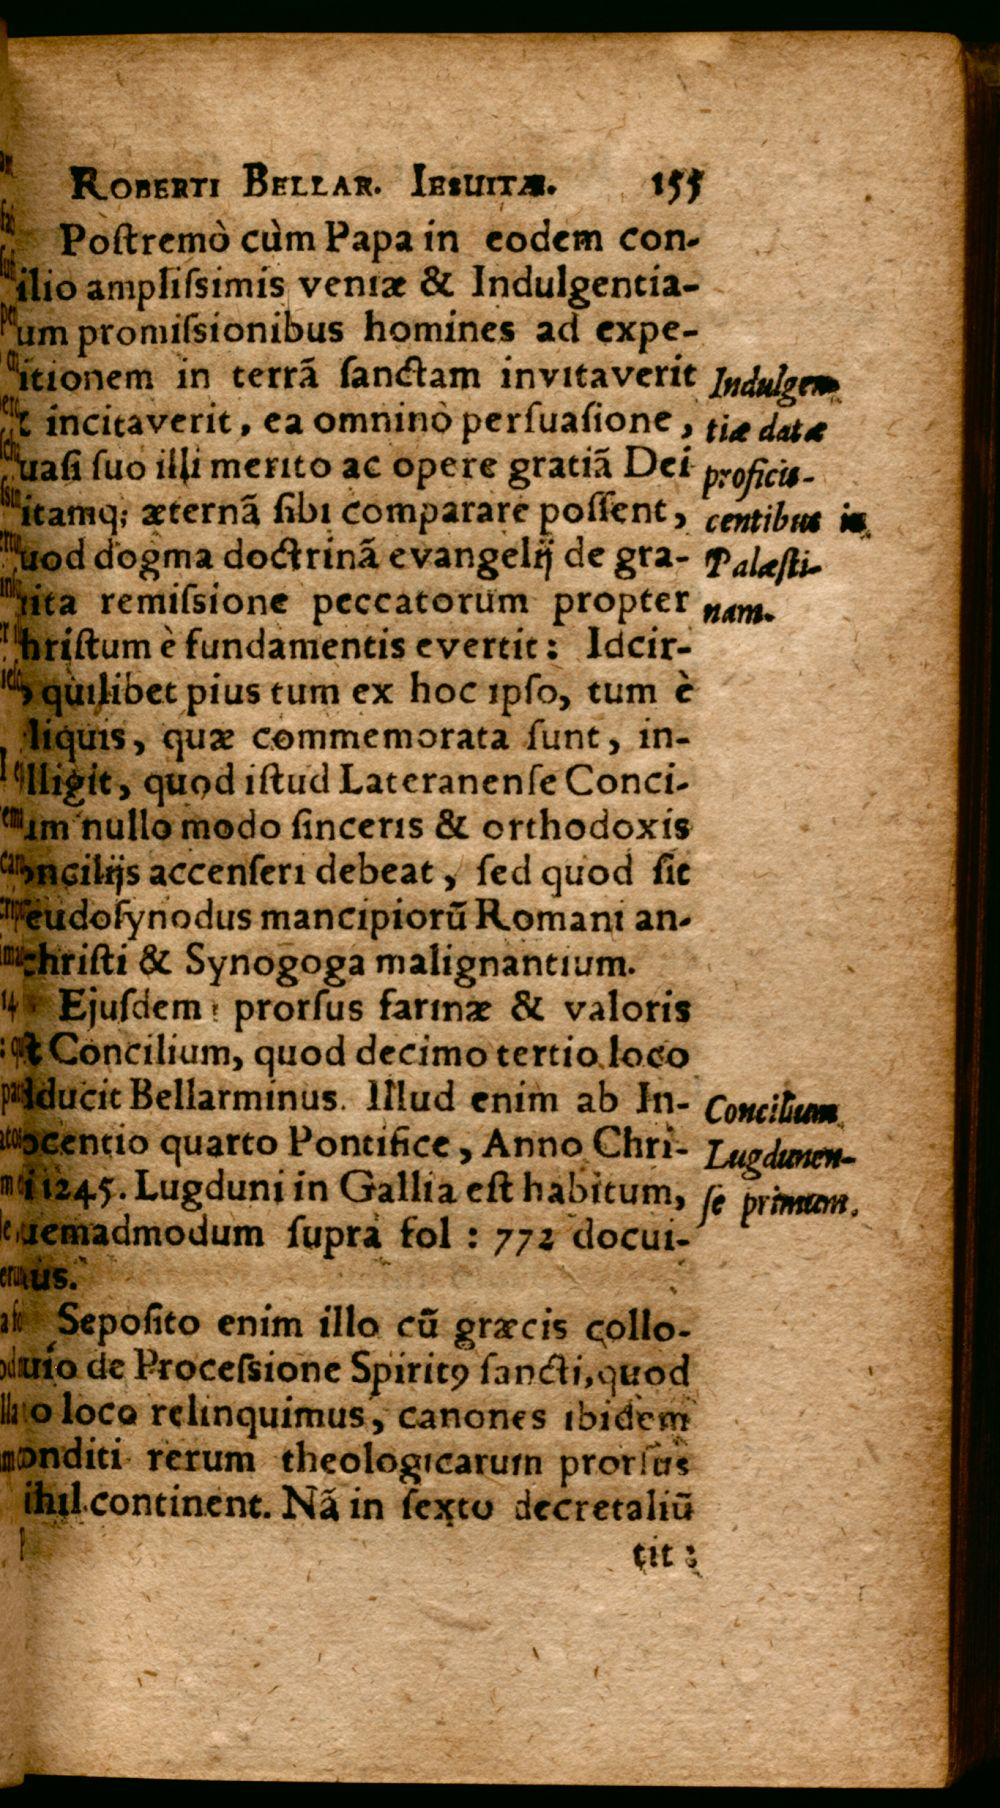 ROBERTI BELLAR. IESUITÆ. 155
Poſtremò cùm Papa in eodem con-
ilio ampliſsimis veniæ & Indulgentia-
um promiſsionibus homines ad expe-
itionem in terrã ſanctam invitaverit
t incitaverit, ea omninò perſuaſione,
uaſi ſuo illi merito ac opere gratiã Dei
itamq; æternã ſibi comparare poſſent,
uod dogma doctrinã evangelij de gra-
ita remiſsione peccatorum propter
hriſtum è fundamentis evertit: Idcir-
o quilibet pius tum ex hoc ipſo, tum è
liquis, quæ commemorata ſunt, in-
lligit, quod iſtud Lateranenſe Conci-
um nullo modo ſinceris & orthodoxis
oncilijs accenſeri debeat, ſed quod ſit
eudoſynodus mancipiorũ Romani an-
chriſti & Synogoga malignantium.
Ejuſdem prorſus farinæ & valoris
ſt Concilium, quod decimo tertio loco
dducit Bellarminus. Illud enim ab In-
ocentio quarto Pontifice, Anno Chri-
i 1245. Lugduni in Gallia eſt habitum,
uemadmodum ſupra fol: 772 docui-
us.
Sepoſito enim illo cũ græcis collo-
uio de Proceſsione Spiritꝰ ſancti, quod
o loco relinquimus, canones ibidem
onditi rerum theologicarum prorſus
ihil continent. Nã in ſexto decretaliũ
tit:
Indulgen-
tiæ datæ
proficiſ-
centibus in
Palæſti-
nam.
Concilium
Lugdunen-
ſe primum.